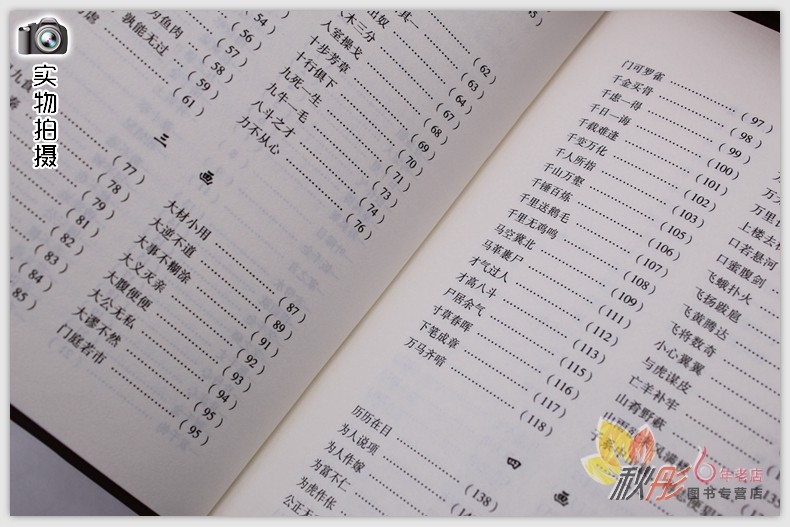 实物拍摄
为鱼肉
孰能无过
(54)
(56)
(57)
(58)
(59)
(61)
(77)
(78)
(79)
(81)
(82)
(83)
(84)
(85)
(62)
其一 (63)
出奴 (64)
木三分 (67)
入室操戈 (68)
十步芳草 (69)
十行俱下 (70)
九死一生 (71)
九牛一毛 (73)
八斗之才 (74)
力不从心 (76)
三 画
大材小用 (87)
大逆不道 (89)
大事不糊涂 (91)
大义灭亲 (92)
大腹便便 (93)
大公无私 (94)
大谬不然 (95)
门庭若市 (95)
门可罗雀 (97)
千金买骨 (98)
千虑一得 (99)
千日一诲 (100)
千载难逢 (101)
千变万化 (102)
千人所指 (103)
千山万壑 (105)
千锤百炼 (106)
千里送鹅毛 (107)
千里无鸡鸣 (108)
马空冀北 (109)
马革裹尸 (111)
才气过人 (112)
才高八斗 (113)
尸居余气 (115)
寸草春晖 (116)
下笔成章 (117)
万马齐喑 (118)
四 画
历历在目 (138)
为人说项
为人作嫁
为富不仁
为虎作伥
公正无
万里
上楼去
口若悬河
口蜜腹剑
飞蛾扑火
飞扬跋扈
飞黄腾达
飞将数奇
小心翼翼
与虎谋皮
亡羊补牢
山肴野蔌
秋彤
6年老店
图书专营店